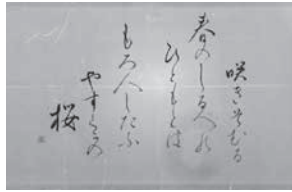 咲きそむる
春のしるへの
ひともとは
もろ人したふ
やすくの
桜